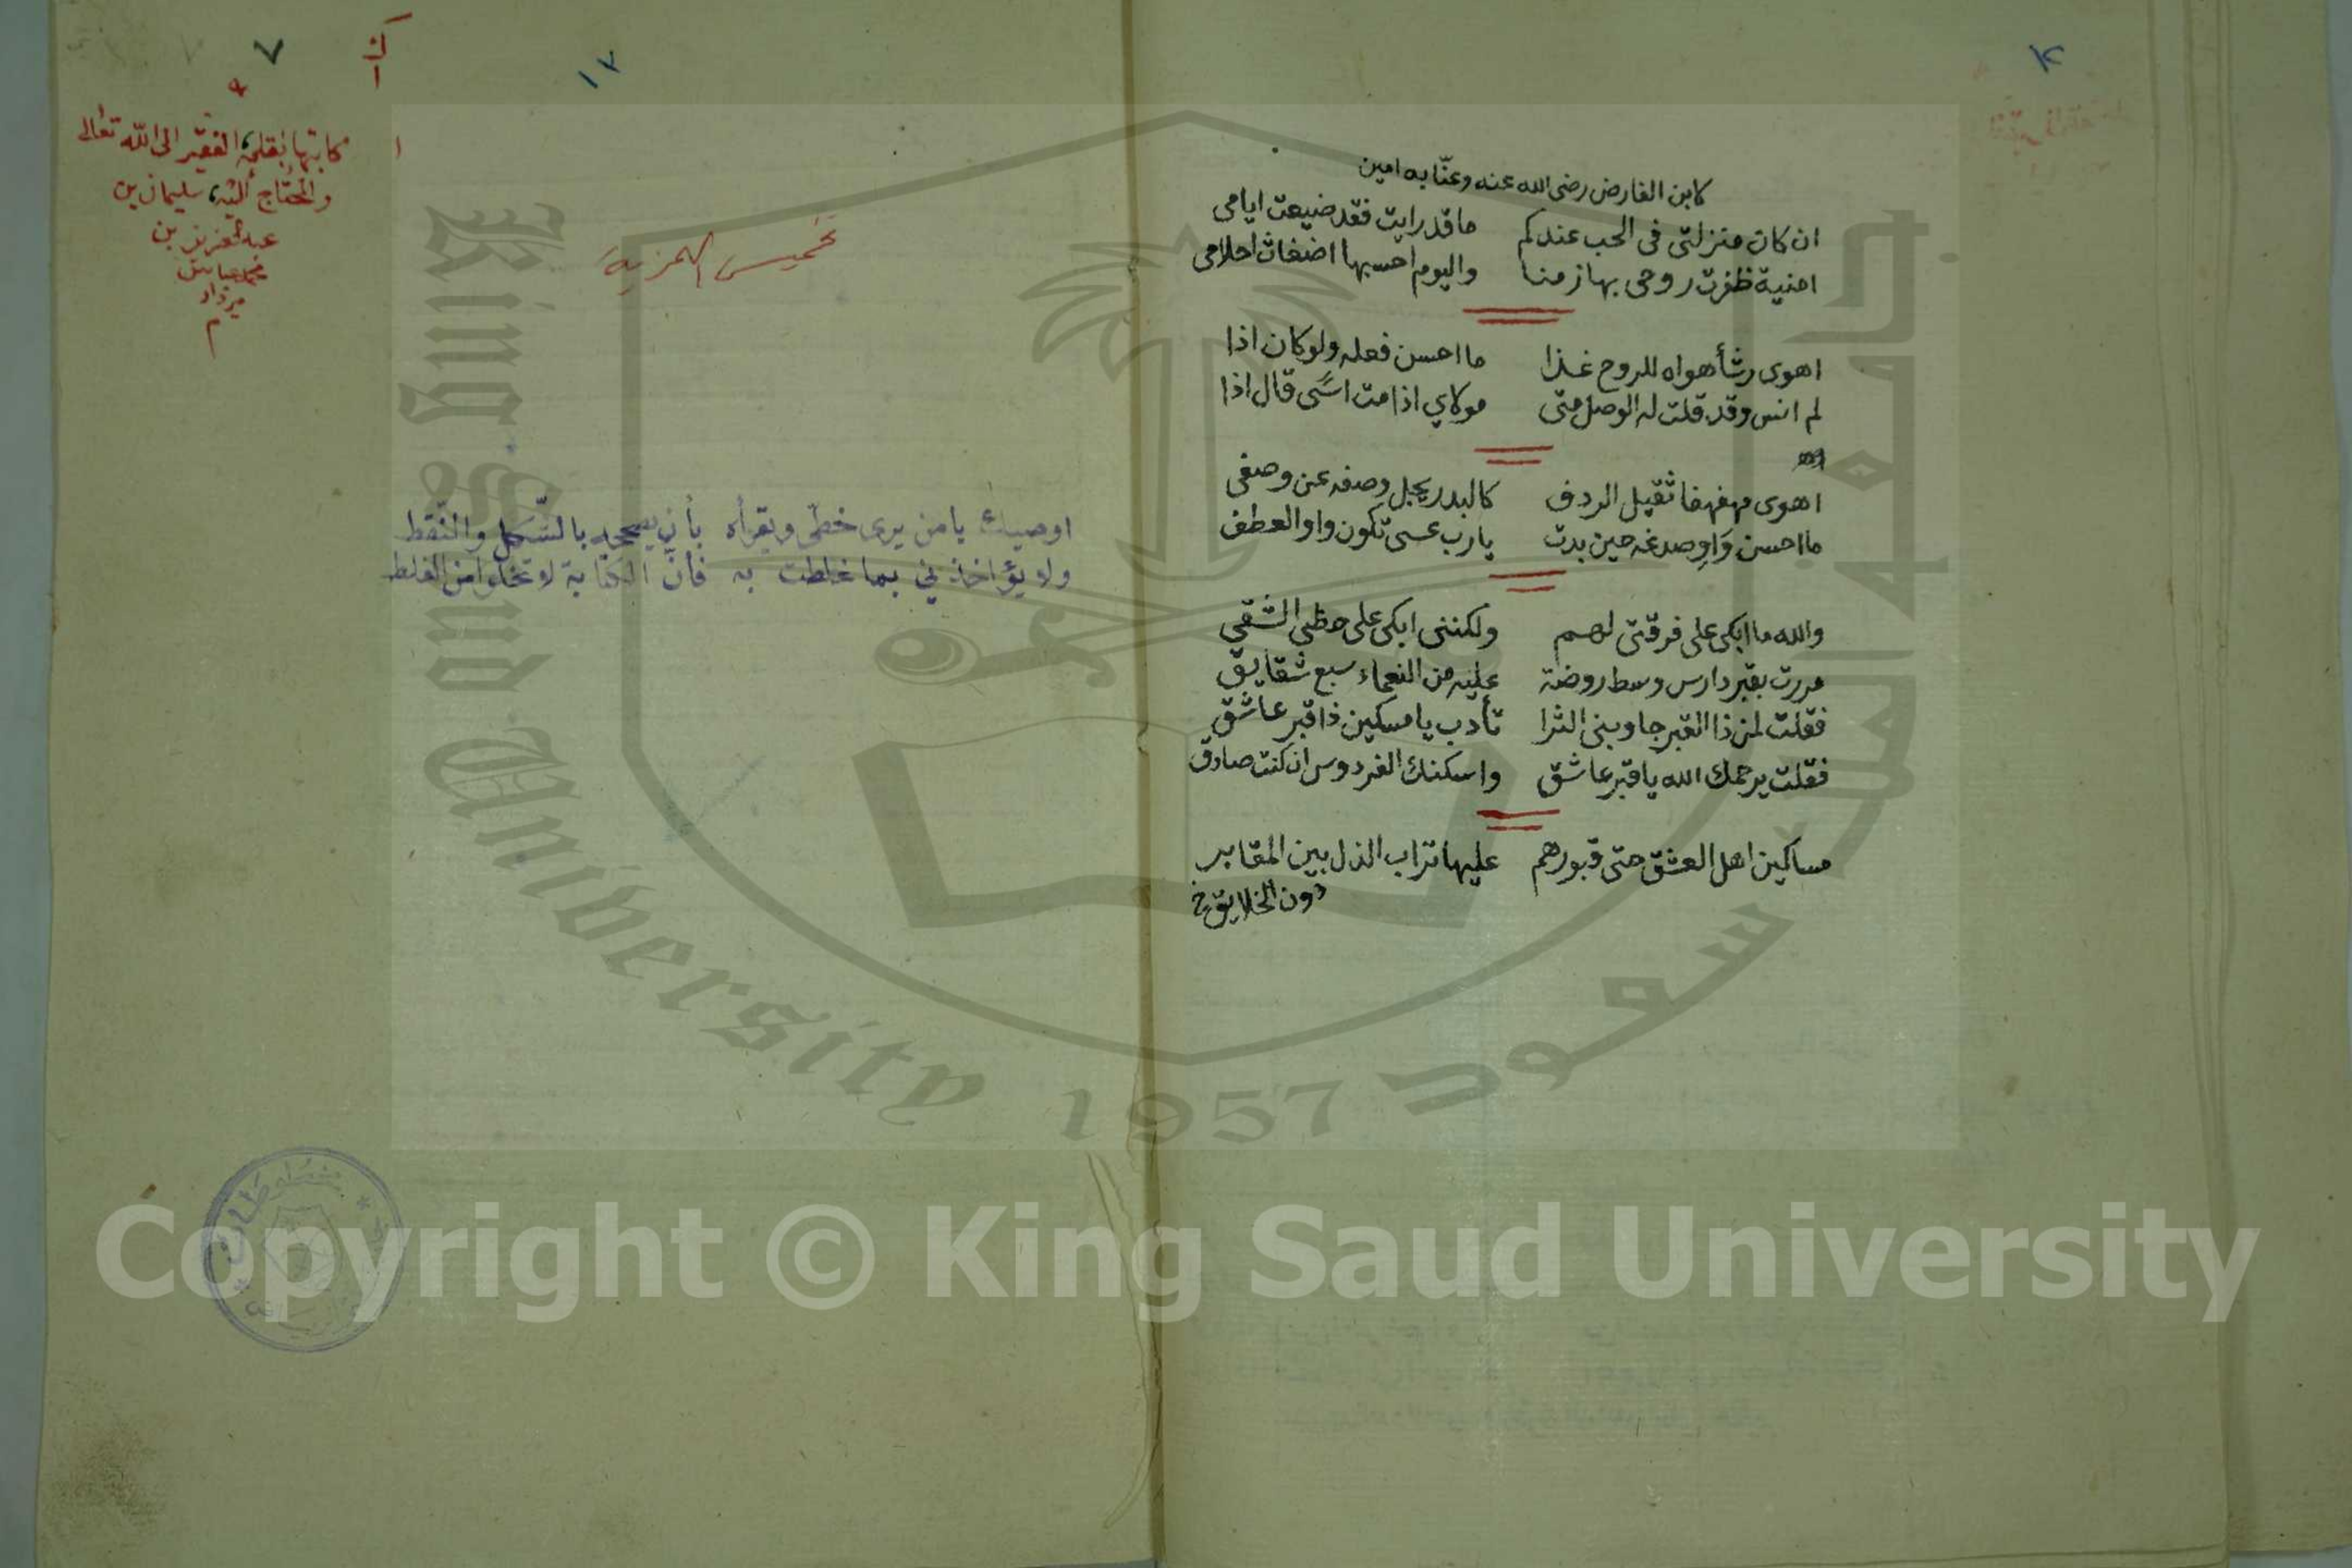 لابن الفارض رضى الله عنه وعنّا به امين
ان كان منزلتى فى الحب عندكم ما قد رايت فقد ضيعت ايامى
امنية ظفرت روحى بها زمنا واليوم احسبها اضغاث احلامى
اهوى رشأ هواه للروح غذا ما احسن فعله ولو كان اذا
لم انس وقد قلت له الوصل متى مولاي اذا مت اسًى قال اذا
اهوى مهفهفا ثقيل الردف كالبدر يجل وصفه عن وصفى
ما احسن وَاوِ صدغه حين بدت يارب عسى تكون واو العطف
والله ما ابكى على فرقتى لهم ولكننى ابكى على حظى الشقي
مررت بقبر دارس وسط روضة عليه من النعماء سبع شقايق
فقلت لمن ذا القبر جاوبنى الثرا تأدب يا مسكين ذا قبر عاشق
فقلت يرحمك الله يا قبر عاشق واسكنك الفردوس ان كنت صادق
مساكين اهل العشق حتى قبورهم عليها تراب الذل بين المقابر
دون الخلايق خ
١٧
٧
كاتبها بقلمه الفقير الى اللّه تعالى
والمحتاج اليه، سليمان بن
عبد العزيز بن
محمد عباس
مرداد
م
تخميس الهمزية
اوصيك يا من يرى خطى ويقرأه بأن يصححه بالشكل والنقط
ولا يؤاخذني بما غلطت به فأنّ الكتابة لا تخلوا من الغلط
King Saud University
1957
جامعة الملك سعود
Copyright © King Saud University